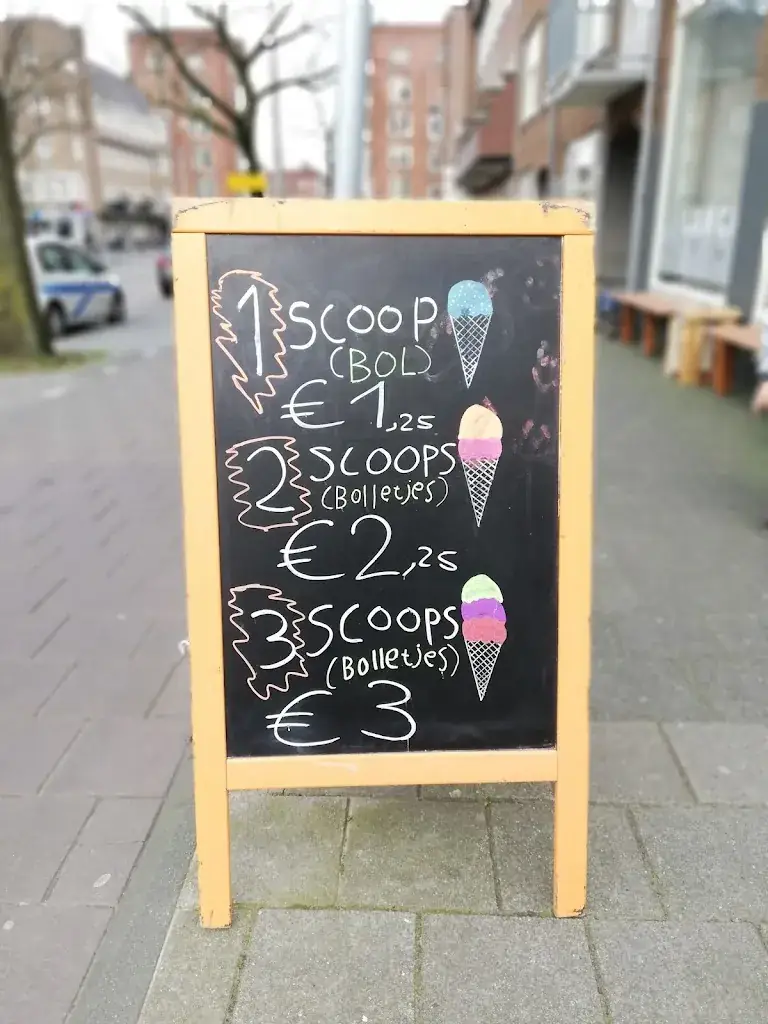 1 SCOOP
(BOL)
€ 1,25
2 SCOOPS
(Bolletjes)
€ 2,25
3 SCOOPS
(Bolletjes)
€ 3